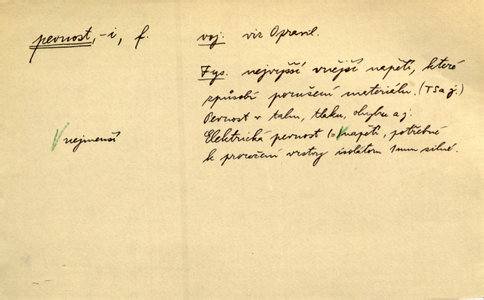 pevnost, -i, f.
voj. viz Opravil.
Fys. nejvyšší vnější napětí, které
způsobí porušení materialu. (TSaj.)
Pevnost v tahu, tlaku, ohybu aj.
Elektrická pevnost (o napětí, potřebné
k proražení vrstvy isolátoru 1mm silné.
√ nejmenší